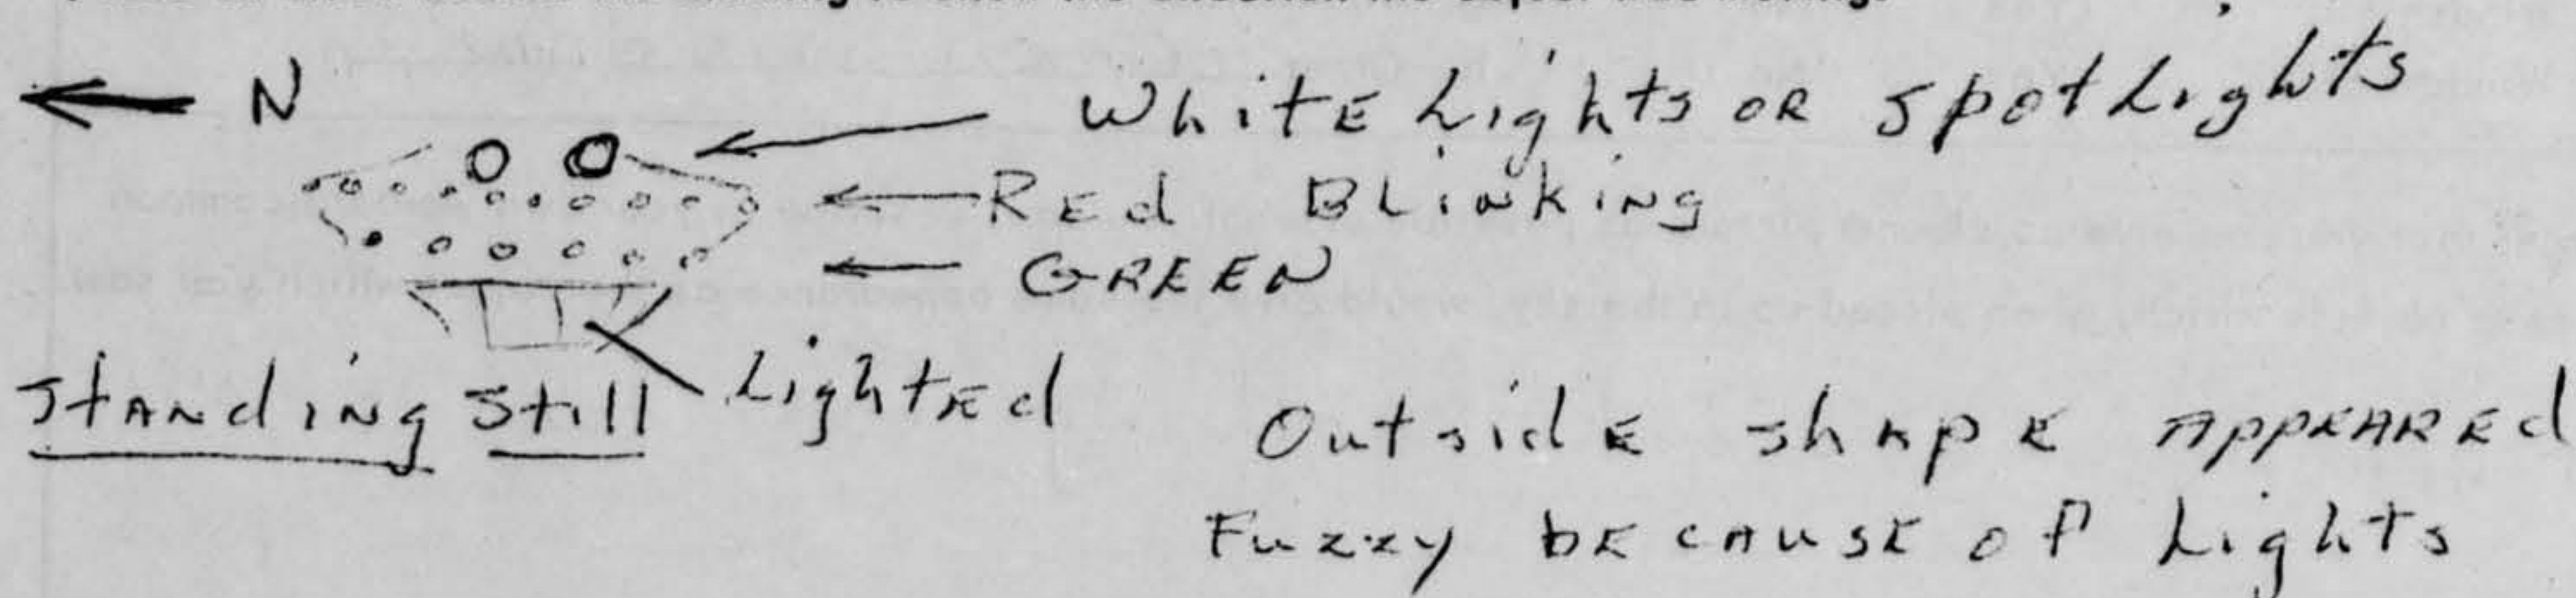 N
White Lights or spotLights
Red Blinking
GREEN
Lighted
Standing Still
Outside shape Appeared
Fuzzy because of Lights